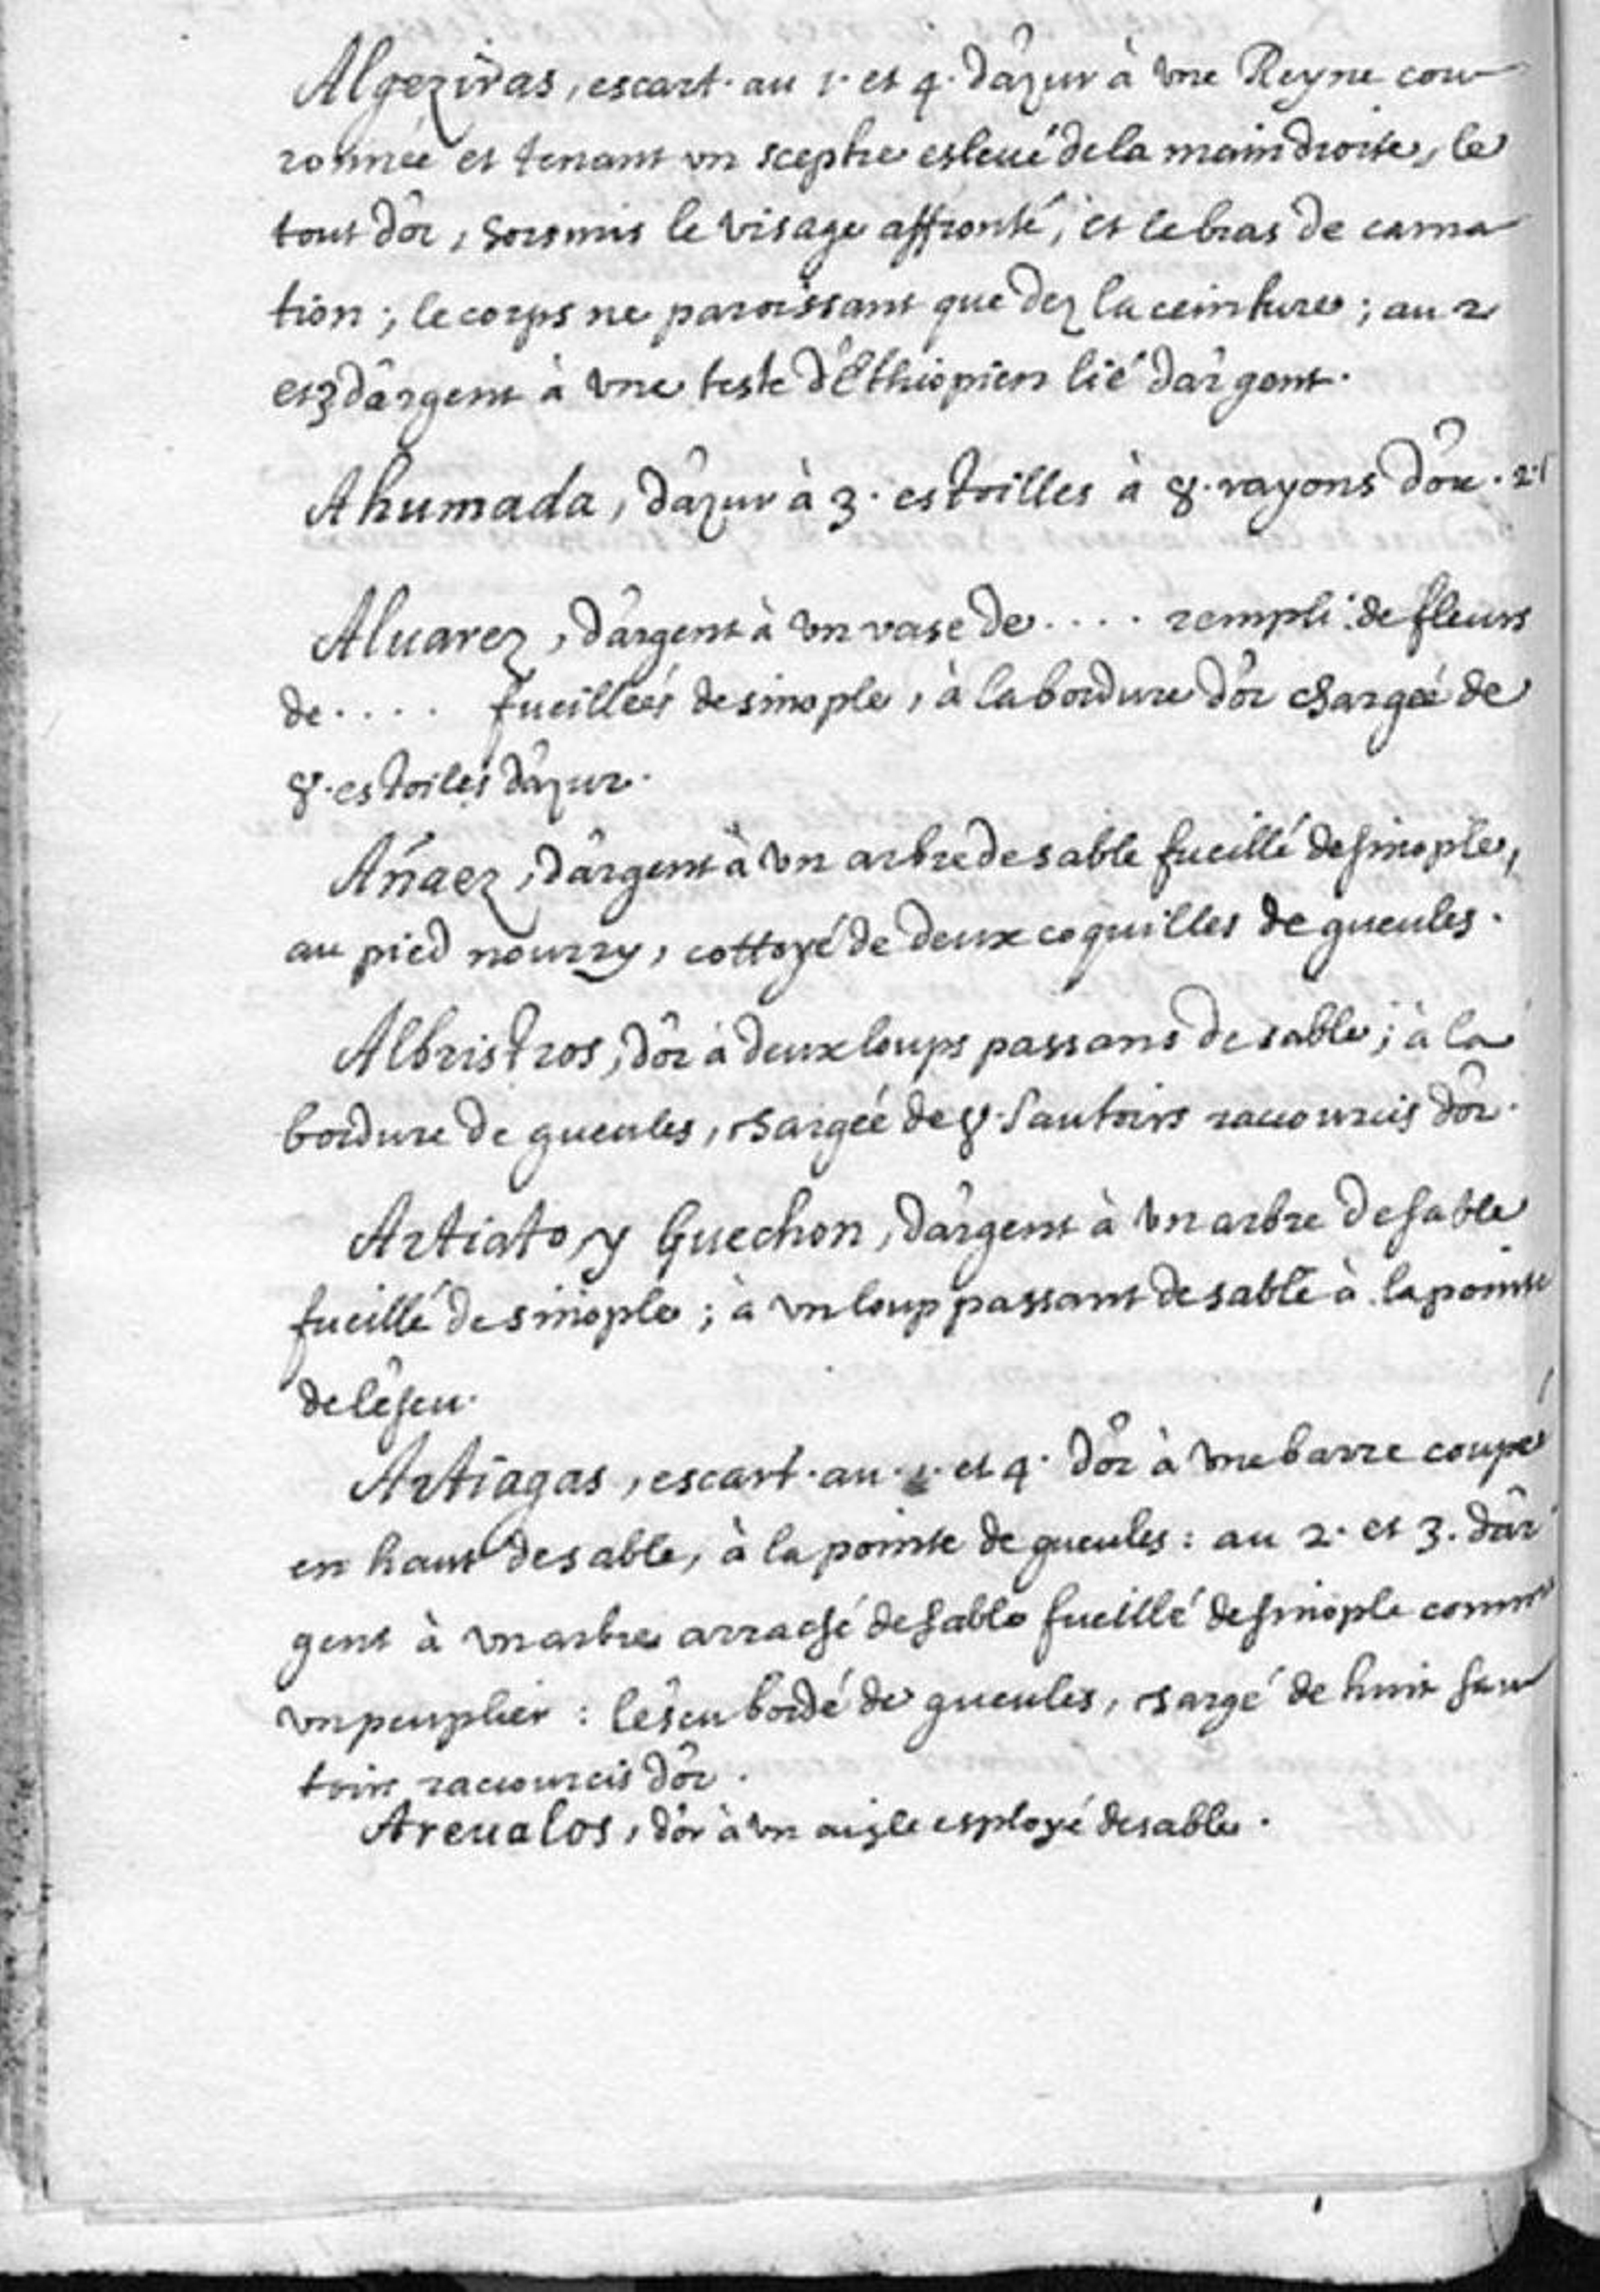 Algeziras, escart. au 1. et 4. d'azur à vne Reyne cou-
ronnée et tenant vn sceptre esleué de la main droite, le
tout d'or, horsmis le visage affronté, et le bras de carna
tion ; le corps ne paroissant que dez la ceinture ; au 2
et 3 d'argent à vne teste d'Ethiopien lié d'argent.
Ahumada, d'azur à 3. estoilles à 8. rayons d'or. 2.1
Aluarez, d'argent à vn vase de .... rempli de fleurs
de .... fueilleés de sinople, à la bordure d'or chargeé de
8. estoiles d'azur.
Añaez, d'argent à vn arbre de sable fueillé de sinople,
au pied nourry, cottoyé de deux coquilles de gueules.
Albristros, d'or à deux loups passans de sable ; à la
bordure de gueules, chargeé de 8. sautoirs raccourcis d'or.
Artiato y Guechon, d'argent à vn arbre de sable
fueillé de sinople ; à vn loup passant de sable à la pointe
de l'escu.
Artiagas, escart. au 1. et 4. d'or à vne barre coupé
en haut de sable, à la pointe de gueules : au 2. et 3. d'ar
gent à vn arbre arraché de sable fueillé de sinople comme
vn peuplier : l'escu bordé de gueules, chargé de huit sau
toirs raccourcis d'or.
Areualos, d'or à vn aigle esployé de sable.